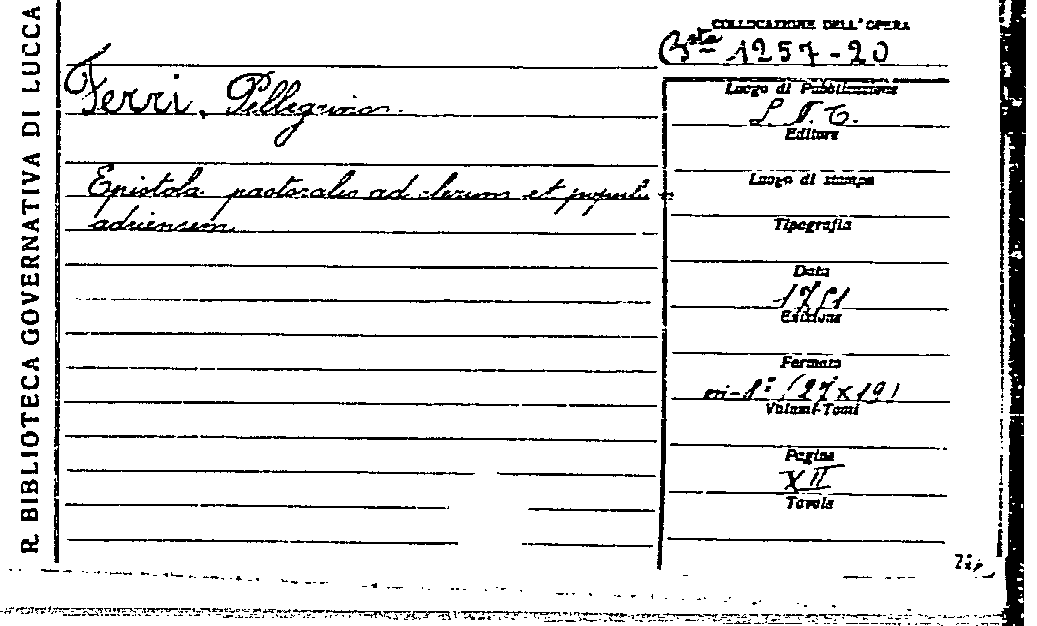 R. BIBLIOTECA GOVERNATIVA DI LUCCA
COLLOCAZIONE DELL'OPERA
Bsta 1257-20
Ferri, Pellegrino.
Epistola pastoralis ad clerum et populum
adriensem
Luogo di Pubblicazione
S. N. T.
Editore
Luogo di stampa
Tipografia
Data
Edizione
Formato
in-8° (27x19)
Volumi-Tomi
Pagine
XII
Tavole